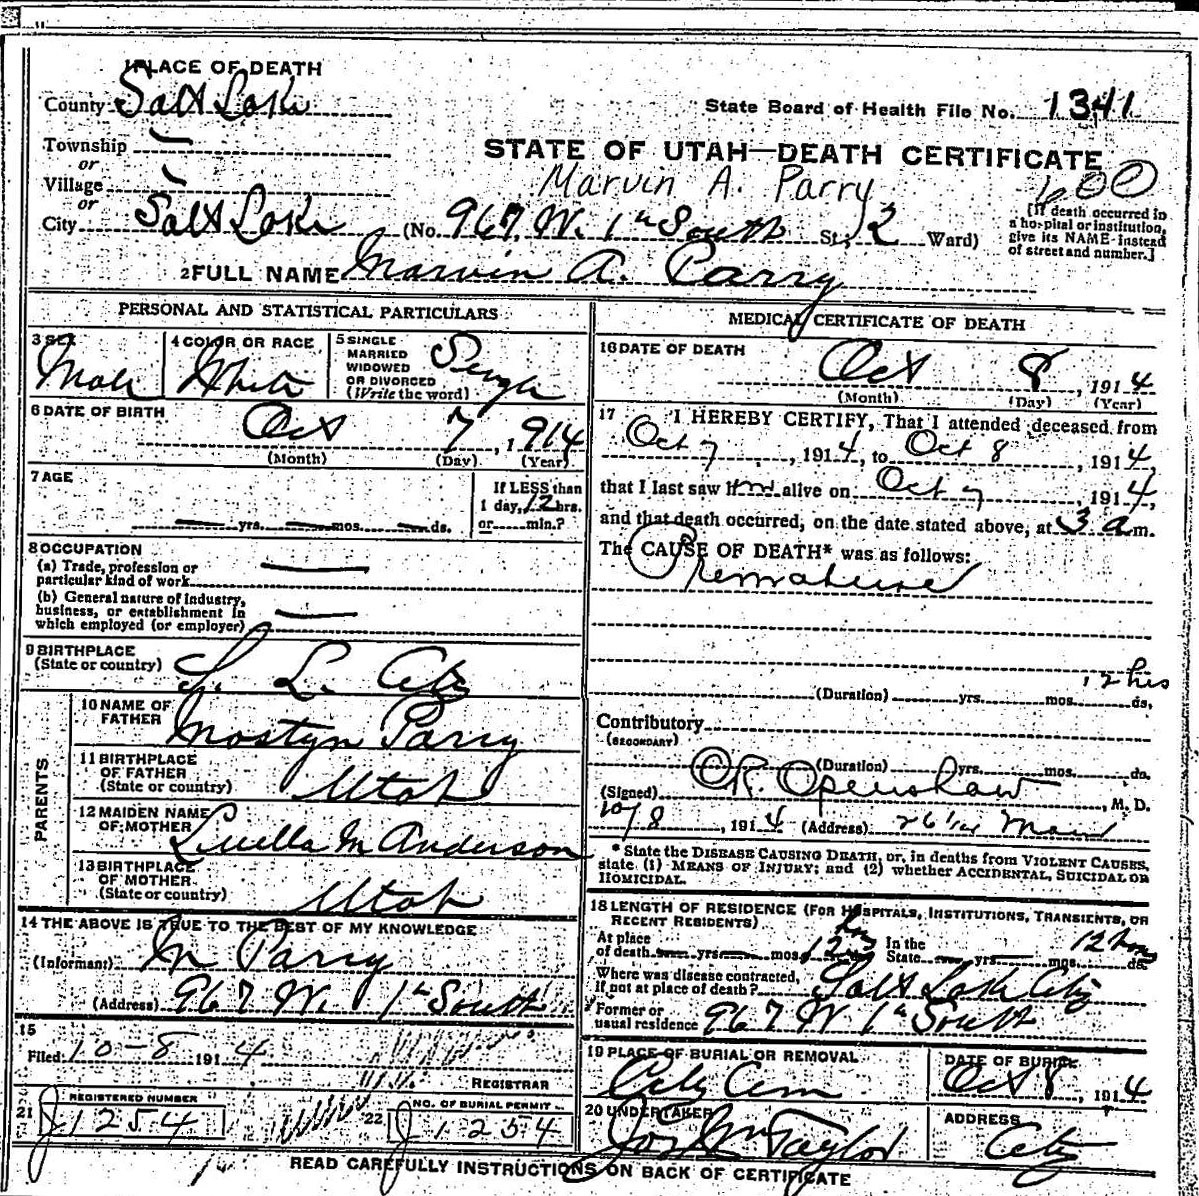 1 PLACE OF DEATH
County Salt Lake
State Board of Health File No. 1341
Township —
or
Village —
or
STATE OF UTAH—DEATH CERTIFICATE
Marvin A. Parry
600
City Salt Lake (No. 967 W. 1st South St; 2 Ward)
[If death occurred in
a hospital or institution,
give its NAME instead
of street and number.]
2 FULL NAME Marvin A. Parry
PERSONAL AND STATISTICAL PARTICULARS
3 SEX
Male
4 COLOR OR RACE
White
5 SINGLE
MARRIED
WIDOWED
OR DIVORCED
(Write the word)
Single
6 DATE OF BIRTH
Oct 7, 1914
(Month) (Day) (Year)
7 AGE
— yrs. — mos. — ds.
If LESS than
1 day, 12 hrs.
or min.?
8 OCCUPATION
(a) Trade, profession or
particular kind of work —
(b) General nature of industry,
business, or establishment in
which employed (or employer) —
9 BIRTHPLACE
(State or country) S. L. City
PARENTS
10 NAME OF
FATHER
Mostyn Parry
11 BIRTHPLACE
OF FATHER
(State or country) Utah
12 MAIDEN NAME
OF MOTHER
Luella M Anderson
13 BIRTHPLACE
OF MOTHER
(State or country) Utah
14 THE ABOVE IS TRUE TO THE BEST OF MY KNOWLEDGE
(Informant) M Parry
(Address) 967 W. 1st South
15
Filed 10-8 1914
REGISTRAR
21 REGISTERED NUMBER
J1254
22 NO. OF BURIAL PERMIT
J1254
MEDICAL CERTIFICATE OF DEATH
16 DATE OF DEATH
Oct 8 1914
(Month) (Day) (Year)
17 I HEREBY CERTIFY, That I attended deceased from
Oct 7, 1914, to Oct 8, 1914,
that I last saw him alive on Oct 7, 1914,
and that death occurred, on the date stated above, at 3 a m.
The CAUSE OF DEATH* was as follows:
Premature
12 hrs
(Duration) yrs. mos. ds.
Contributory
(SECONDARY)
(Duration) yrs. mos. ds.
(Signed) C R. Openshaw, M. D.
10/8, 1914 (Address) Main
* State the DISEASE CAUSING DEATH, or, in deaths from VIOLENT CAUSES,
state (1) MEANS OF INJURY; and (2) whether ACCIDENTAL, SUICIDAL OR
HOMICIDAL.
18 LENGTH OF RESIDENCE (FOR HOSPITALS, INSTITUTIONS, TRANSIENTS, OR
RECENT RESIDENTS)
At place
of death — yrs — mos 12 hrs ds.
In the
State — yrs — mos 12 hrs ds.
Where was disease contracted,
If not at place of death? Salt Lake City
Former or
usual residence 967 W 1st South
19 PLACE OF BURIAL OR REMOVAL
City Cem
DATE OF BURIAL
Oct 8, 1914
20 UNDERTAKER
Jos Wm Taylor
ADDRESS
City
READ CAREFULLY INSTRUCTIONS ON BACK OF CERTIFICATE